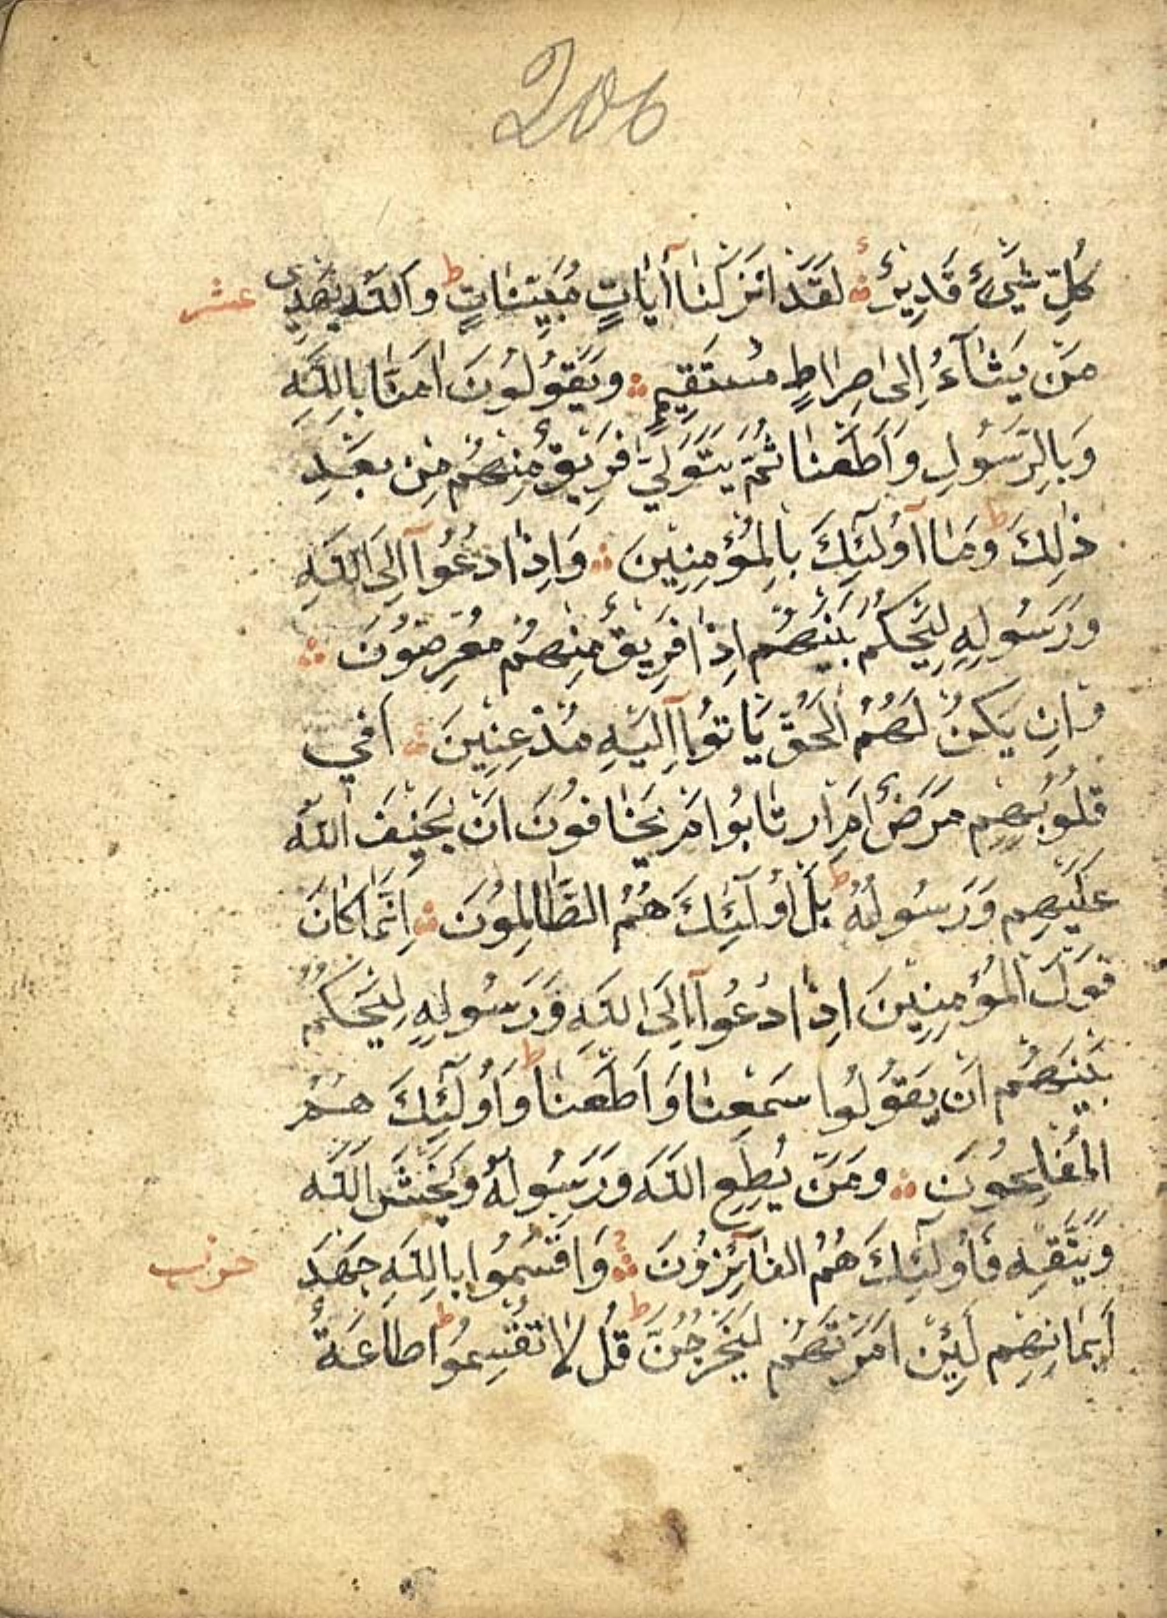 206
كُلِّ شَيْءٍ قَدِيرٌ ۞ لَقَدْ اَنْزَلْنَا اٰيَاتٍ مُبَيِّنَاتٍ ط وَاللّٰهُ يَهْدِي عشر
مَنْ يَشَاۤءُ اِلٰى صِرَاطٍ مُسْتَقِيمٍ ۞ وَيَقُولُونَ اٰمَنَّا بِاللّٰهِ
وَبِالرَّسُولِ وَاَطَعْنَا ثُمَّ يَتَوَلّٰى فَرِيقٌ مِنْهُمْ مِنْ بَعْدِ
ذٰلِكَ ط وَمَا اُولٰۤئِكَ بِالْمُؤْمِنِينَ ۞ وَاِذَا دُعُوۤا اِلَى اللّٰهِ
وَرَسُولِهِ لِيَحْكُمَ بَيْنَهُمْ اِذَا فَرِيقٌ مِنْهُمْ مُعْرِضُونَ ۞
وَاِنْ يَكُنْ لَهُمُ الْحَقُّ يَاْتُوۤا اِلَيْهِ مُذْعِنِينَ ۞ اَفِي
قُلُوبِهِمْ مَرَضٌ اَمِ ارْتَابُوا اَمْ يَخَافُونَ اَنْ يَحِيفَ اللّٰهُ
عَلَيْهِمْ وَرَسُولُهُ ط بَلْ اُولٰۤئِكَ هُمُ الظَّالِمُونَ ۞ اِنَّمَا كَانَ
قَوْلَ الْمُؤْمِنِينَ اِذَا دُعُوۤا اِلَى اللّٰهِ وَرَسُولِهِ لِيَحْكُمَ
بَيْنَهُمْ اَنْ يَقُولُوا سَمِعْنَا وَاَطَعْنَا ط وَاُولٰۤئِكَ هُمُ
الْمُفْلِحُونَ ۞ وَمَنْ يُطِعِ اللّٰهَ وَرَسُولَهُ وَيَخْشَ اللّٰهَ
وَيَتَّقْهِ فَاُولٰۤئِكَ هُمُ الْفَاۤئِزُونَ ۞ وَاَقْسَمُوا بِاللّٰهِ جَهْدَ حزب
اَيْمَانِهِمْ لَئِنْ اَمَرْتَهُمْ لَيَخْرُجُنَّ ط قُلْ لَا تُقْسِمُوا ط طَاعَةٌ